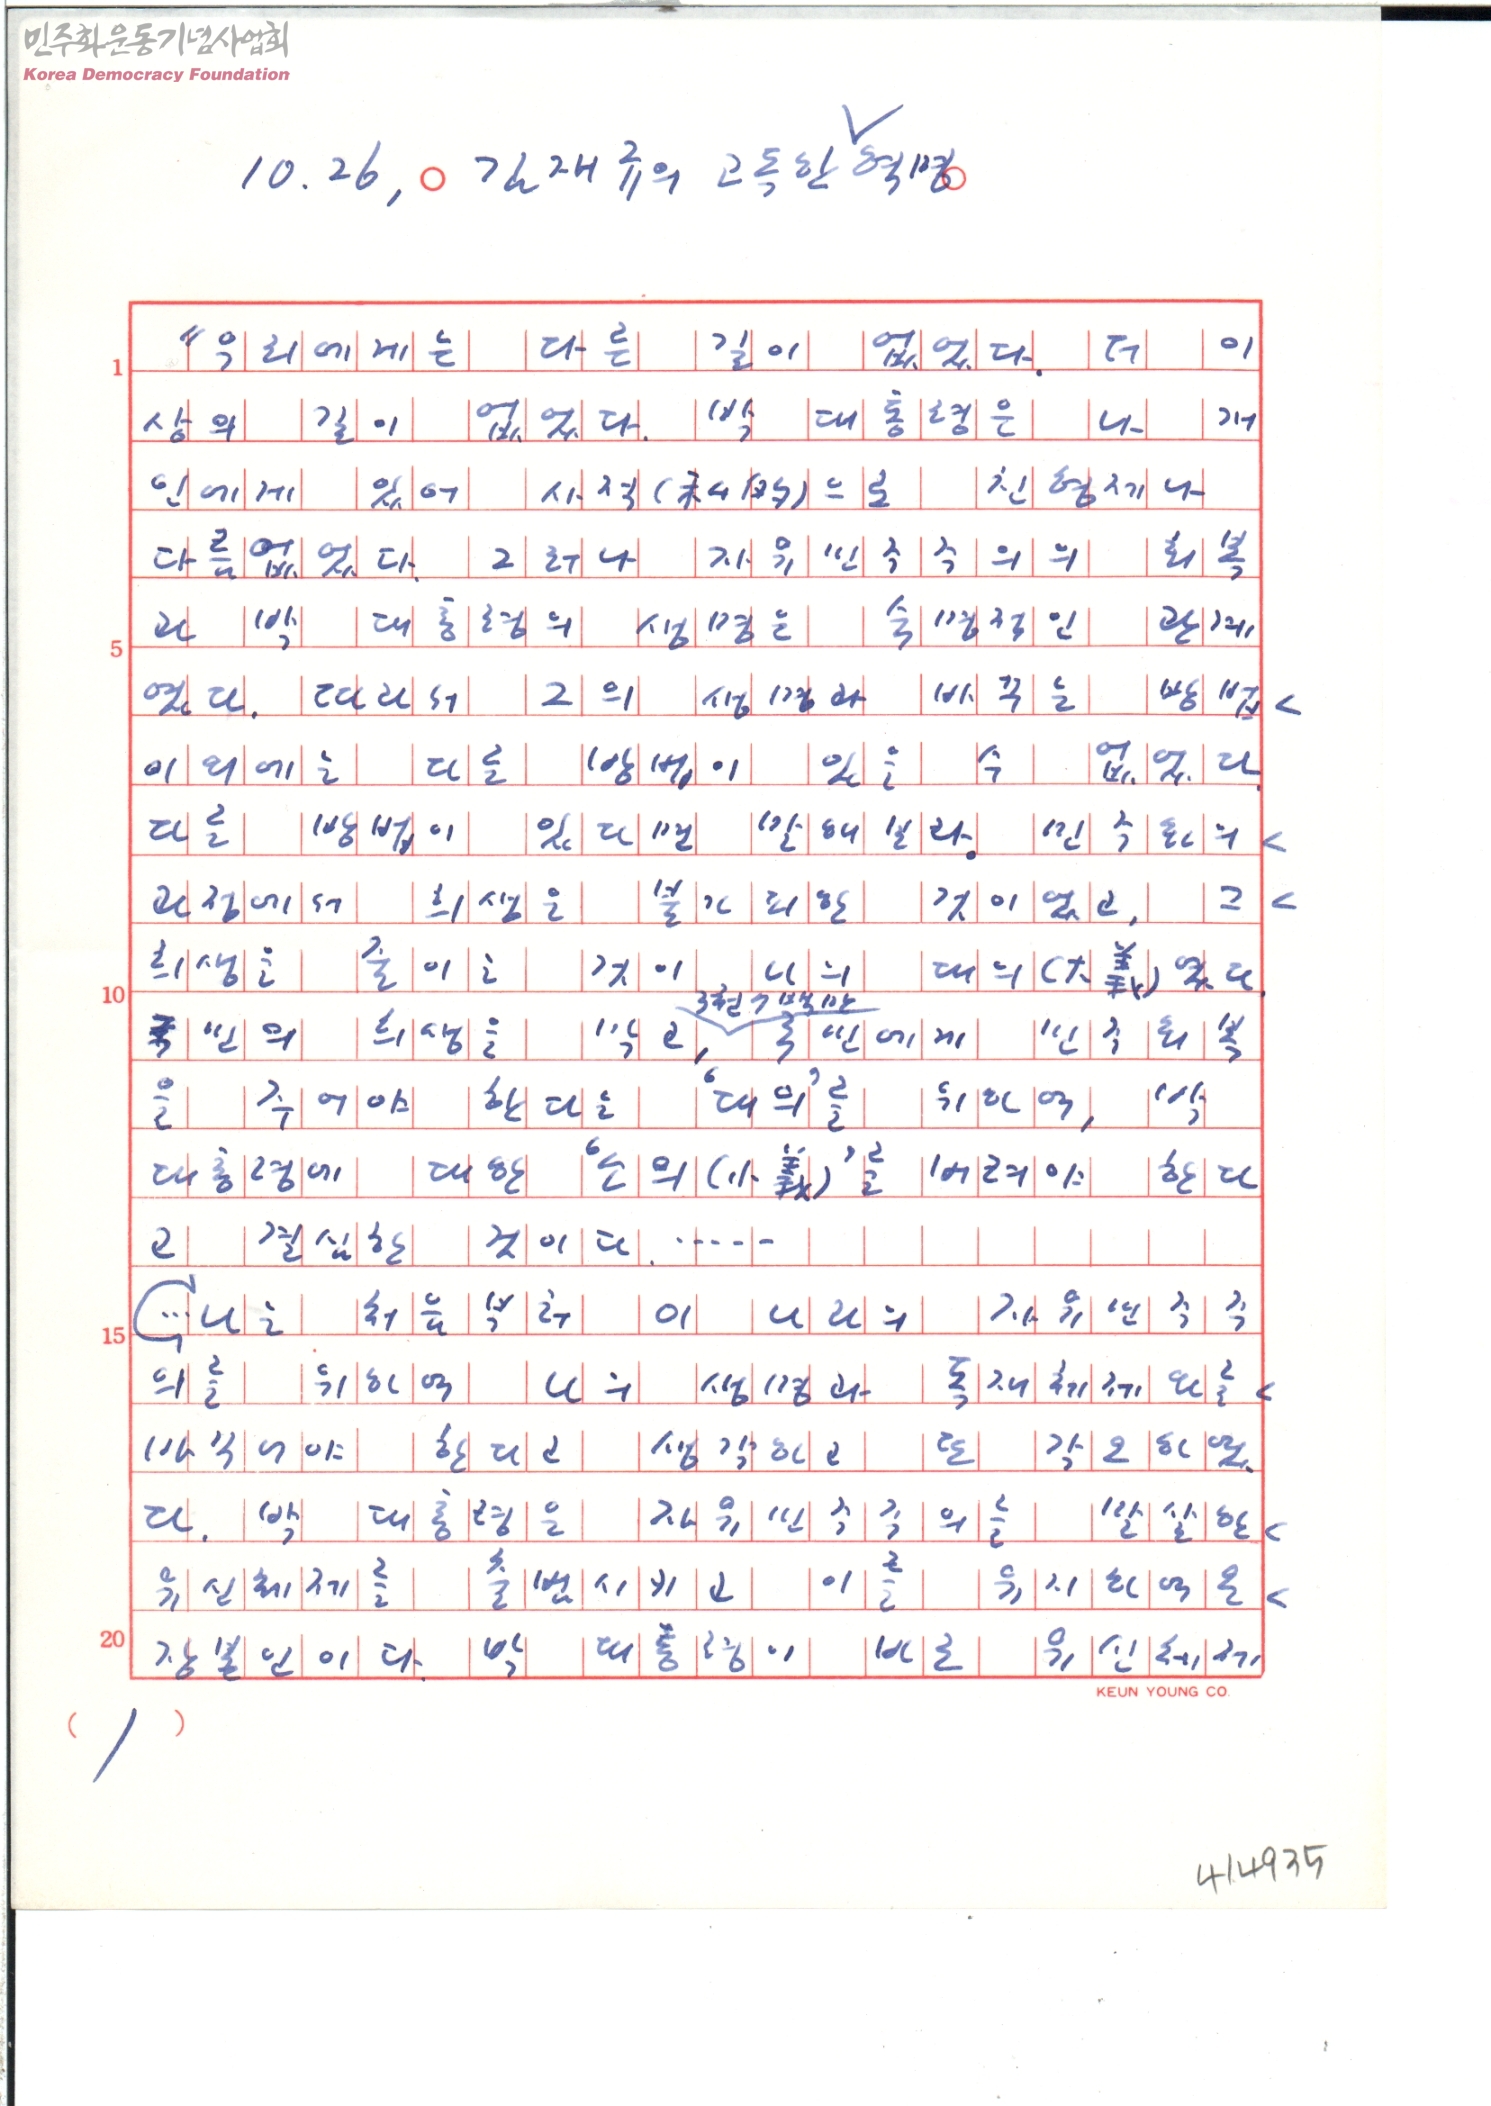 민주화운동기념사업회
Korea Democracy Foundation
10. 26, 김재규의 고독한 혁명
"우리에게는 다른 길이 없었다. 더 이
1
상의 길이 없었다. 박 대통령은 나 개
인에게 있어 사적(私的)으로 친형제나
다름없었다. 그러나 자유민주주의의 회복
과 박 대통령의 생명은 숙명적인 관계
5
였다. 따라서 그의 생명과 바꾸는 방법
이외에는 다른 방법이 있을 수 없었다.
다른 방법이 있다면 말해보라. 민주화의
과정에서 희생은 불가피한 것이었고, 그
희생을 줄이는 것이 나의 대의(大義)였다.
10
3천7백만
국민의 희생을 막고, 국민에게 민주회복
을 주어야 한다는 '대의'를 위하여, 박
대통령에 대한 '소의(小義)'를 버려야 한다
고 결심한 것이다. ……
…나는 처음부터 이 나라의 자유민주주
15
의를 위하여 나의 생명과 독재체제와를
바꾸어야 한다고 생각하고 또 각오하였
다. 박 대통령은 자유민주주의를 말살한
유신체제를 출범시키고 이를 유지하여온
장본인이다. 박 대통령이 바로 유신체제
20
KEUN YOUNG CO.
( 1 )
414935